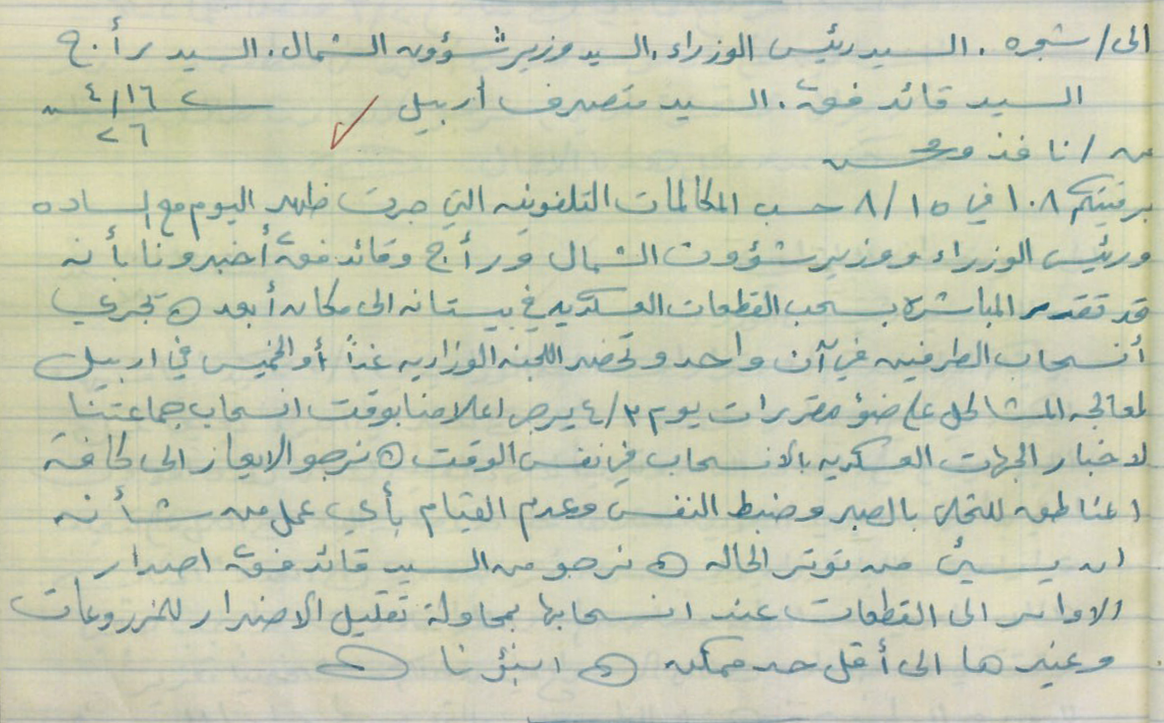 الى/ شجره . السيد رئيس الوزراء . السيد وزير شؤون الشمال . السيد ر أ. ج
السيد قائد فق٢ . السيد متصرف أربيل ٤/١٦
٢٦
من / نافذ ومحسن
برقيتكم ١٠٨ في ٨/١٥ حسب المكالمات التلفونيه التي جرت ظهر اليوم مع الساده
ورئيس الوزراء ووزير شؤون الشمال و ر أ ج وقائد فق٢ أخبرونا بأنه
قد تقدر المباشرة بسحب القطعات العسكريه في بيستانه الى مكان أبعد ه تجري
أنسحاب الطرفين في آن واحد وتحضر اللجنه الوزاريه غداً أو الخميس في اربيل
لمعالجه المشاكل على ضؤ مقررات يوم ٤/٣ يرجى اعلامنا بوقت انسحاب جماعتنا
لاخبار الجهات العسكريه بالانسحاب في نفس الوقت ه نرجو الايعاز الى كافة
المناطق للتحلي بالصبر وضبط النفس وعدم القيام بأي عمل من شأنه
ان يسيئ من توتر الحاله ه نرجو من السيد قائد فق٢ اصدار
الاوامر الى القطعات عند انسحابها بمحاولة تقليل الاضرار للمزروعات
وغيرها الى أقل حد ممكن ه انبؤنا ه